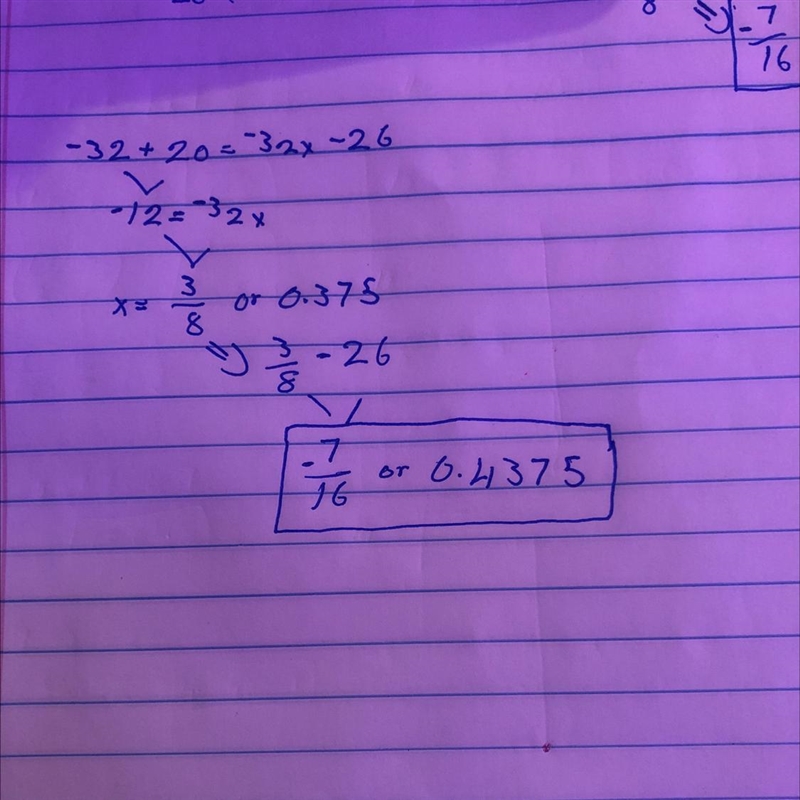 8 => -7/16
-32 + 20 = -32x - 26
-12 = -32x
x = 3/8 or 0.375
=> 3/8 - 26
-7/16 or 0.4375